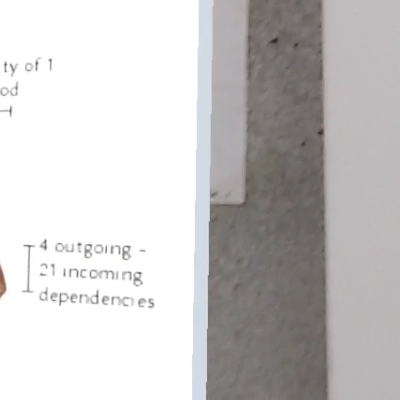 ty of 1
od
4 outgoing -
21 incoming
dependencies